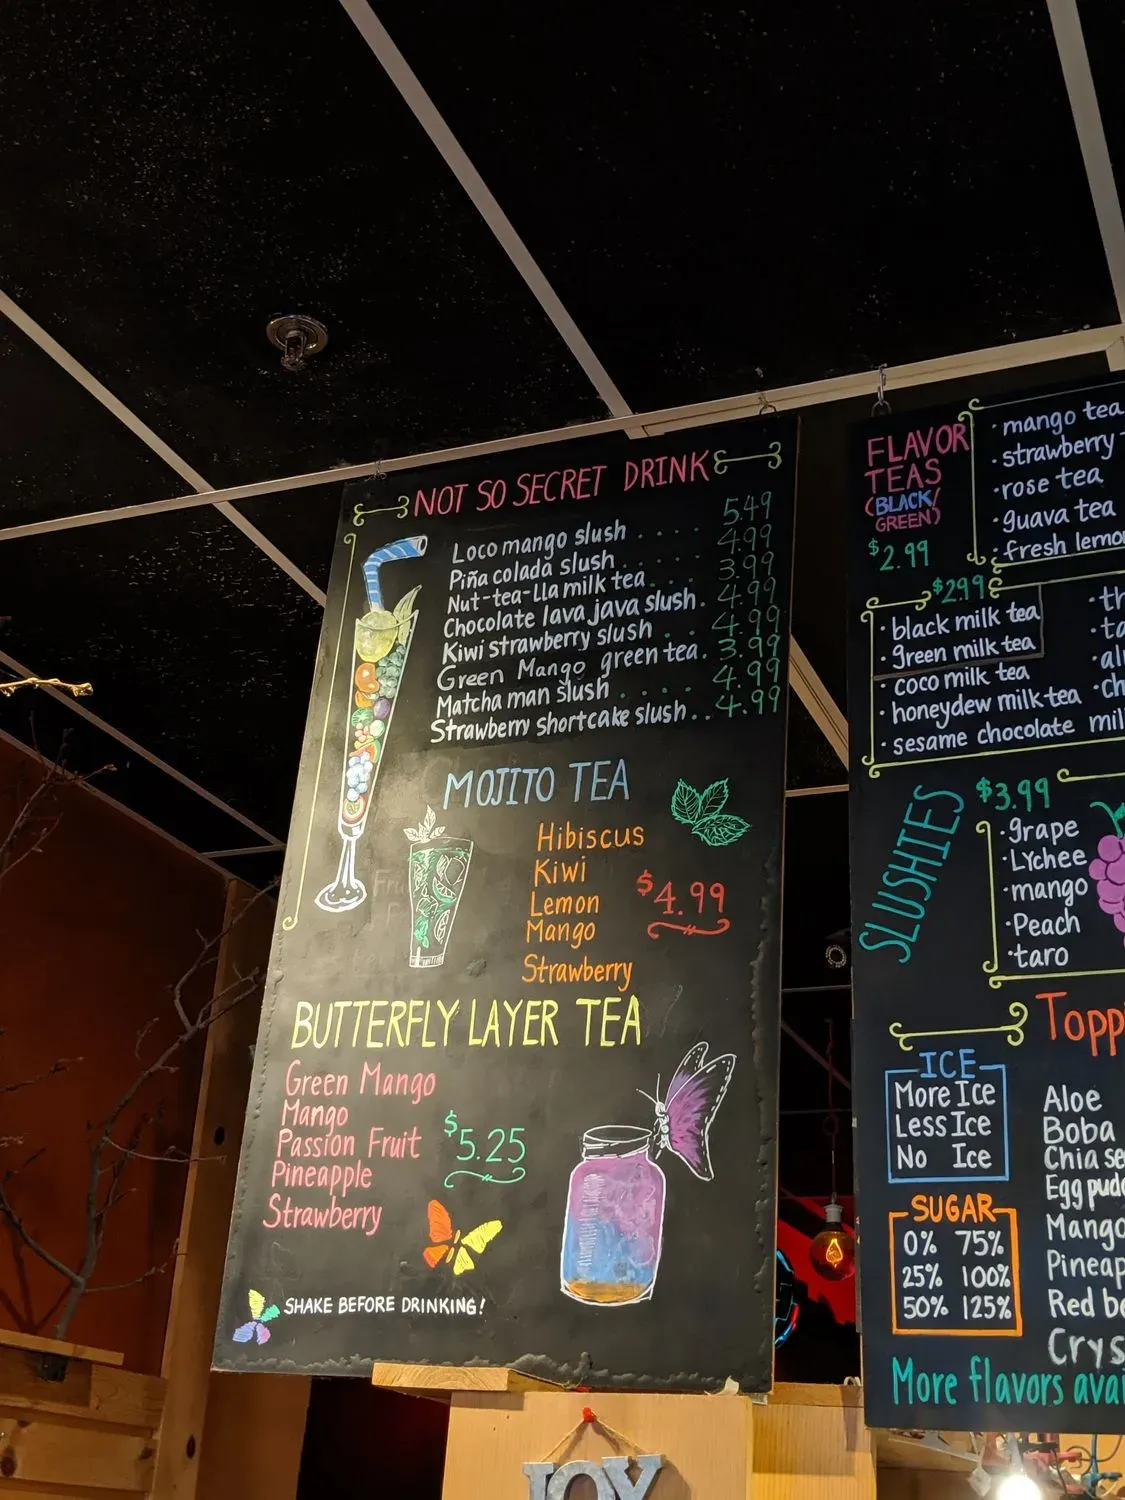 NOT SO SECRET DRINK
Loco mango slush . . . . 5.49
Piña colada slush . . . . 4.99
Nut-tea-lla milk tea . . . 3.99
Chocolate lava java slush . 4.99
Kiwi strawberry slush . . . 4.99
Green Mango green tea . 3.99
Matcha man slush . . . . 4.99
Strawberry shortcake slush . . 4.99
MOJITO TEA
Hibiscus
Kiwi
Lemon
Mango
Strawberry
$4.99
BUTTERFLY LAYER TEA
Green Mango
Mango
Passion Fruit
Pineapple
Strawberry
$5.25
SHAKE BEFORE DRINKING!
FLAVOR
TEAS
(BLACK/
GREEN)
$2.99
· mango tea
· strawberry
· rose tea
· guava tea
· fresh
$2.99
· black milk tea
· green milk tea
· coco milk tea
· honeydew milk tea
· sesame chocolate
SLUSHIES
$3.99
· grape
· Lychee
· mango
· Peach
· taro
ICE
More Ice
Less Ice
No Ice
SUGAR
0% 75%
25% 100%
50% 125%
Aloe
Boba
Chia
Egg
Mango
Red
More flavors
JOY